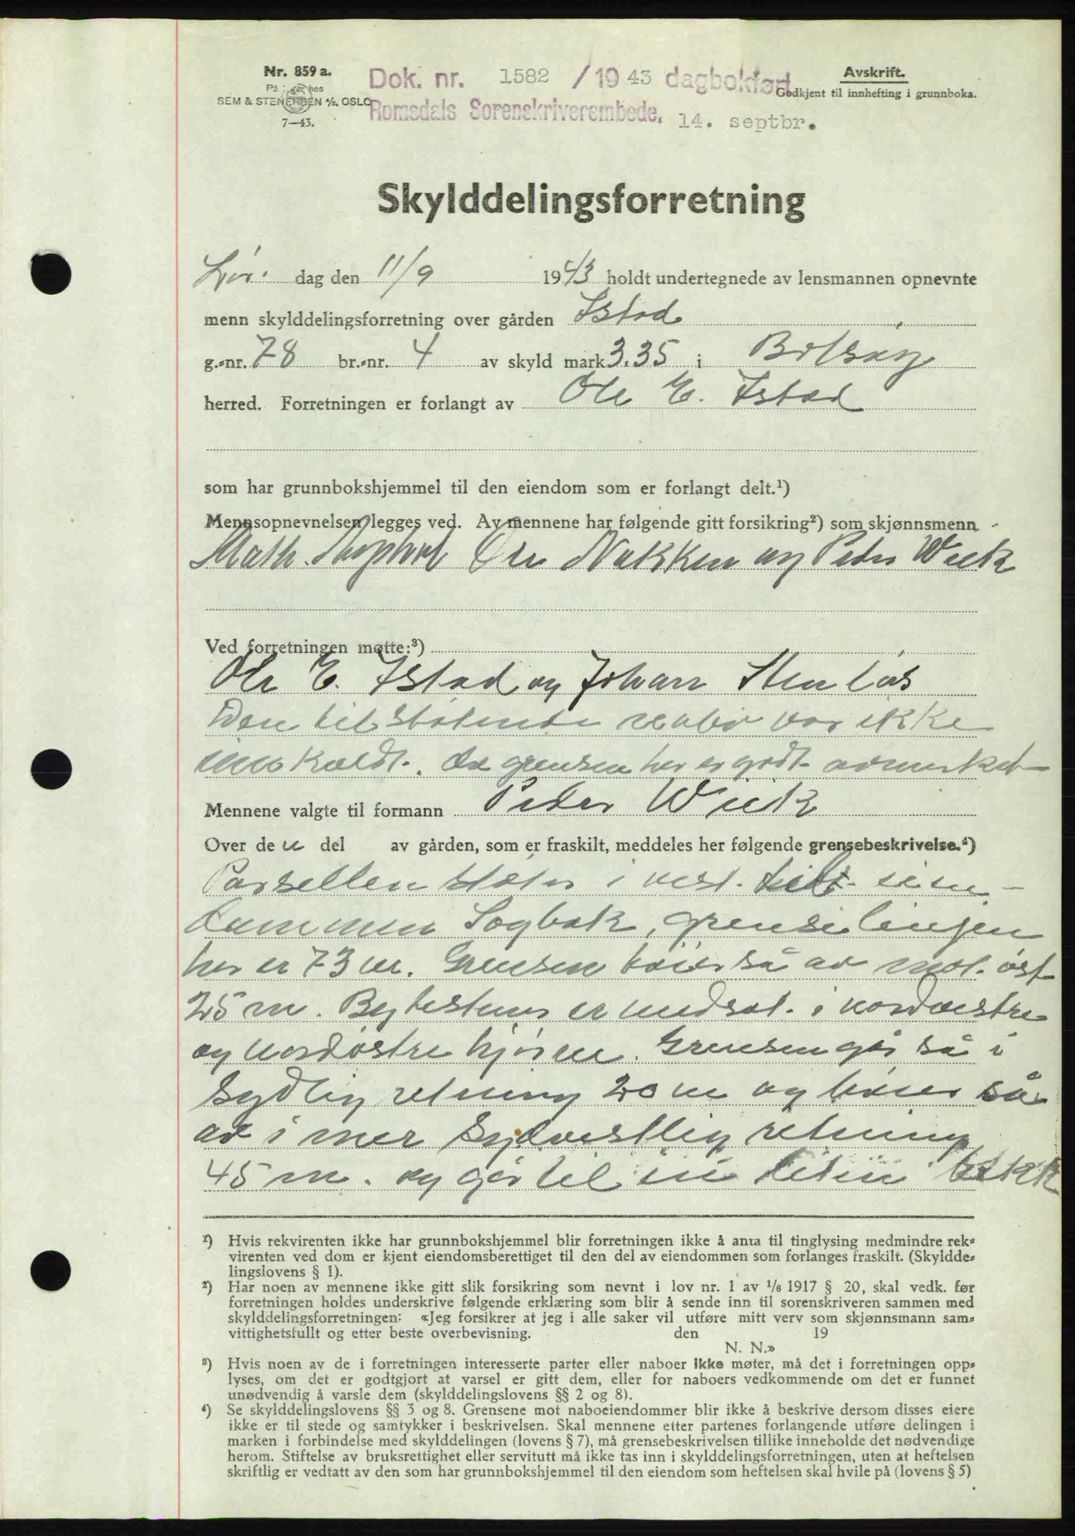 Nr. 859 a.
På lager hos
SEM & STENERSEN A/S, OSLO
7—43.
Dok. nr. 1582 /19 43 dagbokført
Romsdals Sorenskriverembede. 14. septbr.
Avskrift.
Godkjent til innhefting i grunnboka.
Skylddelingsforretning
Lør. dag den 11/9 1943 holdt undertegnede av lensmannen opnevnte
menn skylddelingsforretning over gården Istad
g.-nr. 78 br.-nr. 4 av skyld mark 3.35 i Bolsøy
herred. Forretningen er forlangt av Ole E. Istad
som har grunnbokshjemmel til den eiendom som er forlangt delt.¹)
Mennsopnevnelsen legges ved. Av mennene har følgende gitt forsikring²) som skjønnsmenn
Math. Ole Nakken og Peder Wiik
Ved forretningen møtte:³)
Ole E. Istad og Johan Stenløs
Den tilstøtende nabo var ikke
innkaldt. da grensen her er godt avmerket
Mennene valgte til formann Peder Wiik
Over den del av gården, som er fraskilt, meddeles her følgende grensebeskrivelse.⁴)
Parsellen støter i vest. til eien-
dommen Sagbak, grenselinjen
her er 73 m. Grensen bøier så av mot. øst
25 m. Bytestener er nedsat. i nordvestre
og nordøstre hjørne. Grensen går så i
sydlig retning 20 m og bøier så
av i mer sydvestlig retning
45 m. og går til en liten bekk
¹) Hvis rekvirenten ikke har grunnbokshjemmel blir forretningen ikke å anta til tinglysing medmindre rek-
virenten ved dom er kjent eiendomsberettiget til den del av eiendommen som forlanges fraskilt. (Skyldde-
lingslovens § 1).
²) Har noen av mennene ikke gitt slik forsikring som nevnt i lov nr. 1 av 1/6 1917 § 20, skal vedk. før
forretningen holdes underskrive følgende erklæring som blir å sende inn til sorenskriveren sammen med
skylddelingsforretningen: «Jeg forsikrer at jeg i alle saker vil utføre mitt verv som skjønnsmann sam-
vittighetsfullt og etter beste overbevisning. den 19
N. N.»
³) Hvis noen av de i forretningen interesserte parter eller naboer ikke møter, må det i forretningen opp-
lyses, om det er godtgjort at varsel er gitt dem, eller for naboers vedkommende om det er funnet
unødvendig å varsle dem (skylddelingslovens §§ 2 og 8).
⁴) Se skylddelingslovens §§ 3 og 8. Grensene mot naboeiendommer blir ikke å beskrive dersom disses eiere
ikke er til stede og samtykker i beskrivelsen. Skal mennene etter partenes forlangende utføre delingen i
marken i forbindelse med skylddelingen (lovens § 7), må grensebeskrivelsen tillike inneholde det nødvendige
herom. Stiftelse av bruksrettighet eller servitutt må ikke tas inn i skylddelingsforretningen, uten at heftelsen
skriftlig er vedtatt av den som har grunnbokshjemmel til den eiendom som heftelsen skal hvile på (lovens § 5)